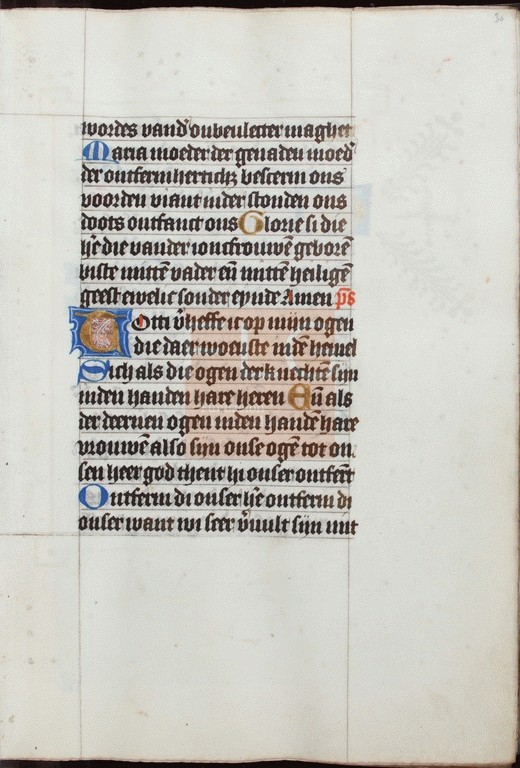 wordes vand' onbeulecter maghet
Maria moeder der genaden moed'
der ontfermhertich; bescerm ons
voorden viant inder stonden ons
doots ontfanct ons Glorie si die
hē die vander ioncfrouwē geborē
biste mittē vader eñ mittē heiligē
geest ewelic sonder eynde Amen ps
Totti v̄heffe ic op mijn ogen
die daer woenste indē hemel
Sich als die ogen der knechtē sijn
inden handen hare heren Eñ als
der deernen ogen inden handē hare
vrouwē also sijn onse ogē tot on
sen heer god thent hi onser ontfērt
Ontferm di onser hē ontferm di
onser want wi seer v̄uult sijn mit